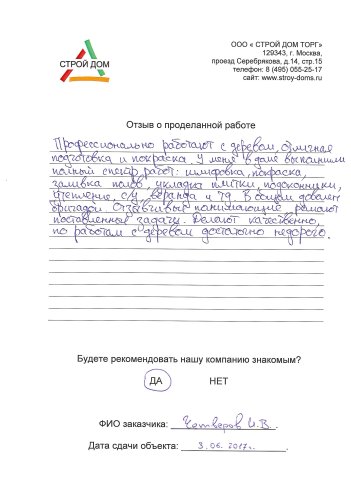 СТРОЙ ДОМ
ООО « СТРОЙ ДОМ ТОРГ»
129343, г. Москва,
проезд Серебрякова, д.14, стр.15
телефон: 8 (495) 055-25-17
сайт: www.stroy-doms.ru
Отзыв о проделанной работе
Профессионально работают с деревом, отличная
подготовка и покраска. У меня в доме выполнили
полный спектр работ: шлифовка, покраска,
заливка полов, укладка плитки, подоконники,
утепление, с/у, веранда и тд. В общем доволен
бригадой. Отзывчивые понимающие решают
поставленные задачи. Делают качественно,
по работам с деревом достаточно недорого.
Будете рекомендовать нашу компанию знакомым?
ДА НЕТ
ФИО заказчика: Четверов И.В.
Дата сдачи объекта: 3.06.2017г.